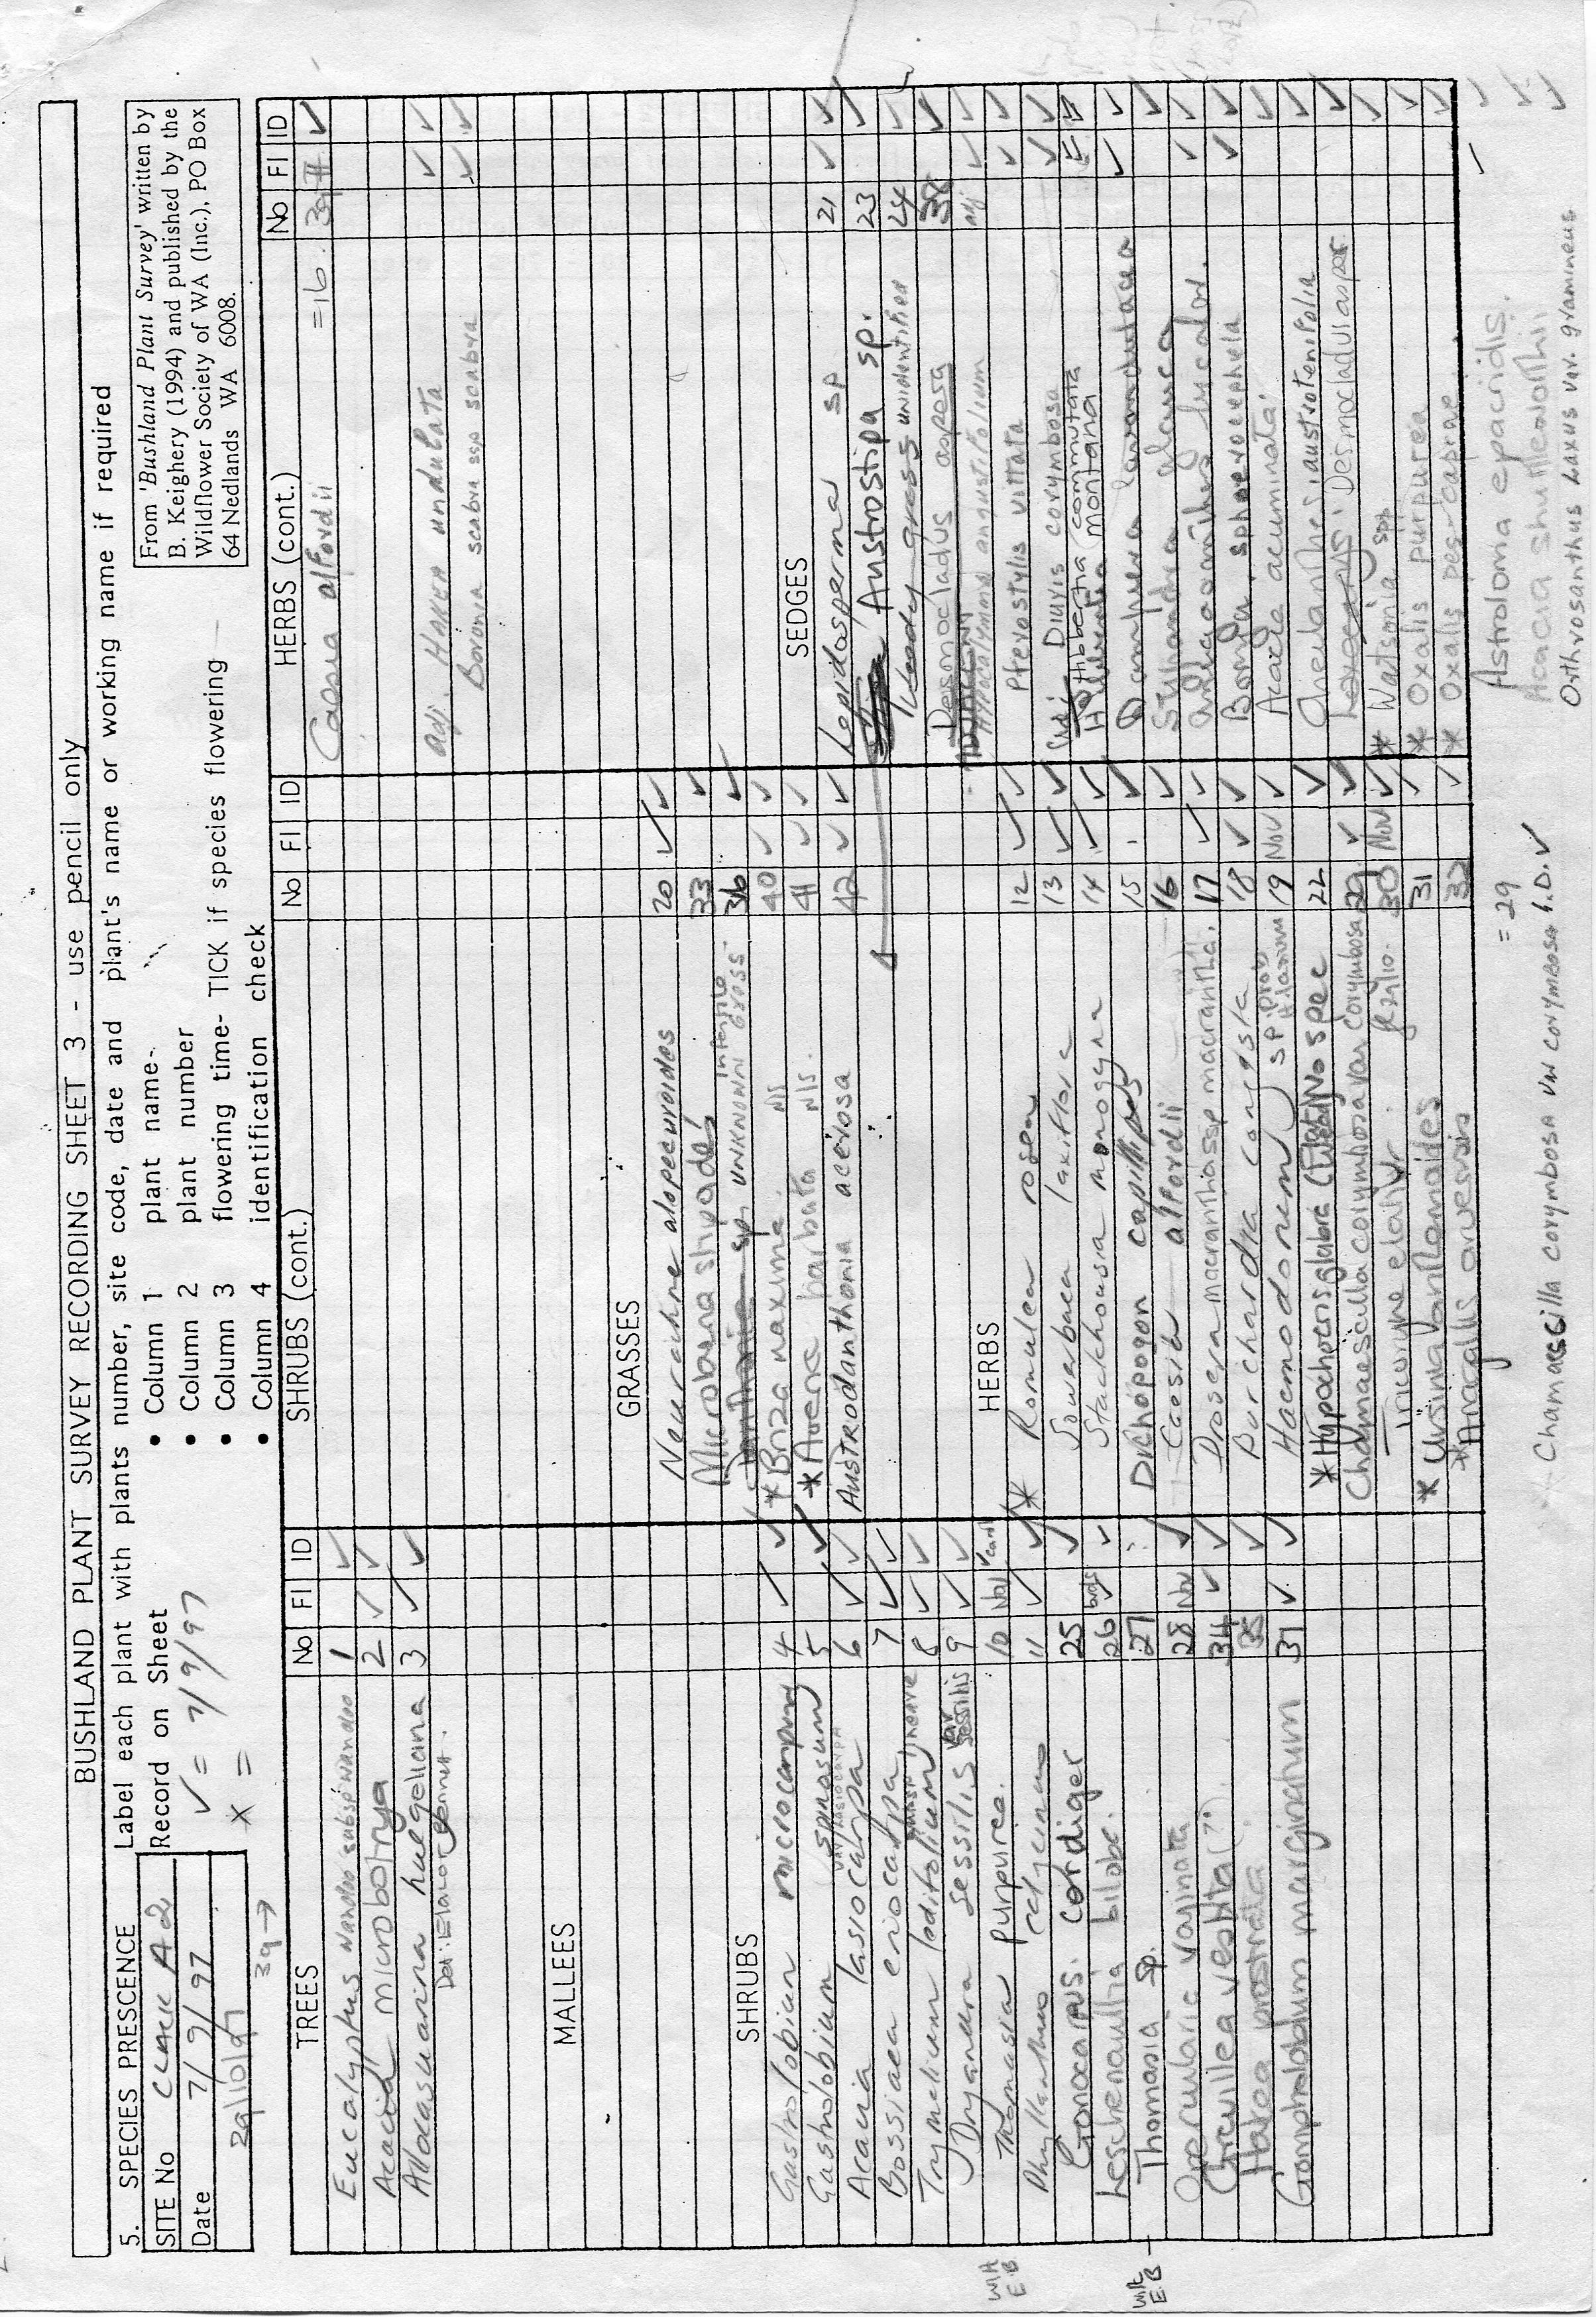 BUSHLAND PLANT SURVEY RECORDING SHEET 3 - use pencil only
5. SPECIES PRESCENCE
Label each plant with plants number, site code, date and plant's name or working name if required
SITE No CLACK A2
Date 7/9/97
29/10/97
39 →
Record on Sheet
✓ = 7/9/97
x =
• Column 1 plant name-
• Column 2 plant number
• Column 3 flowering time- TICK if species flowering
• Column 4 identification check
From 'Bushland Plant Survey' written by
B. Keighery (1994) and published by the
Wildflower Society of WA (Inc.), PO Box
64 Nedlands WA 6008.
TREES No Fl ID
Eucalyptus wandoo subsp wandoo 1 ✓
Acacia microbotrya 2 ✓ ✓
Allocasuarina huegeliana 3 ✓ ✓
Det: Eleanor Bennett.
MALLEES
SHRUBS
Gastrolobium microcarpum 4 ✓ ✓
Gastrolobium spinosum 5 ✓
Acacia lasiocarpa var lasiocarpa 6 ✓ ✓
Bossiaea eriocarpa 7 ✓ ✓
Trymalium ledifolium 8 ✓ ✓
Dryandra sessilis var sessilis 9 ✓ ✓
With E.B
Thomasia purpurea. 10 Nov
Phyllanthus calycinus 11 ✓ ✓
Gonocarpus. cordiger 25 ✓
Leschenaultia biloba. 26 buds ✓
With E.B
Thomasia sp. 27
Opercularia vaginata 28 Nov ✓
Grevillea vestita (?) 34 ✓ ✓
Hakea prostrata 35 ✓
Gompholobium marginatum 37 ✓ ✓
SHRUBS (cont.) No Fl ID
GRASSES
Neurachne alopecuroides 20 ✓ ✓
Microlaena stipoides 33 ✓
sp. UNKNOWN GRASS 36 ✓
* Briza maxima N/S 40 ✓ ✓
* Avena barbata N/S. 41 ✓ ✓
Austrodanthonia acerosa 42 ✓ ✓
HERBS
* Romulea rosea 12 ✓ ✓
Sowerbaea laxiflora 13 ✓ ✓
Stackhousia monogyna 14 ✓ ✓
Dichopogon capillipes 15 ✓
Caesia alfordii 16 ✓
Drosera macrantha ssp macrantha. 17 ✓ ✓
Burchardia congesta 18 ✓ ✓
Haemodorum sp 19 Nov ✓
* Hypochaeris glabra No spec 22 ✓
Chamaescilla corymbosa var corymbosa 29 ✓ ✓
Tricoryne elatior 30 Nov ✓
* Ursinia anthemoides 31 ✓
* Anagallis arvensis 32 ✓
= 29
Chamaescilla corymbosa var corymbosa I.D. ✓
HERBS (cont.) No Fl ID
Caesia alfordii =16. ✓
adj. Hakea undulata ✓ ✓
Boronia scabra ssp scabra ✓ ✓
SEDGES
Lepidosperma sp 21 ✓ ✓
Austrostipa sp. 23 ✓
Weedy grass unidentified 24
Desmocladus aspera 38 ✓
Hypocalymma angustifolium adj ✓ ✓
Pterostylis vittata ✓ ✓
Diuris corymbosa ✓ ✓
Hibbertia commutata
montana
Dampiera lavandulacea ✓ ✓
Stypandra glauca ✓
Anigozanthos bicolor. ✓ ✓
Borya sphaerocephela ✓ ✓
Acacia acuminata ✓
Cheilanthes austrotenifolia ✓
Desmocladus asper ✓
* Watsonia spp ✓
* Oxalis purpurea ✓
* Oxalis pes-caprae. ✓
Astroloma epacridis.
Acacia shuttleworthii
Orthrosanthus laxus var. gramineus